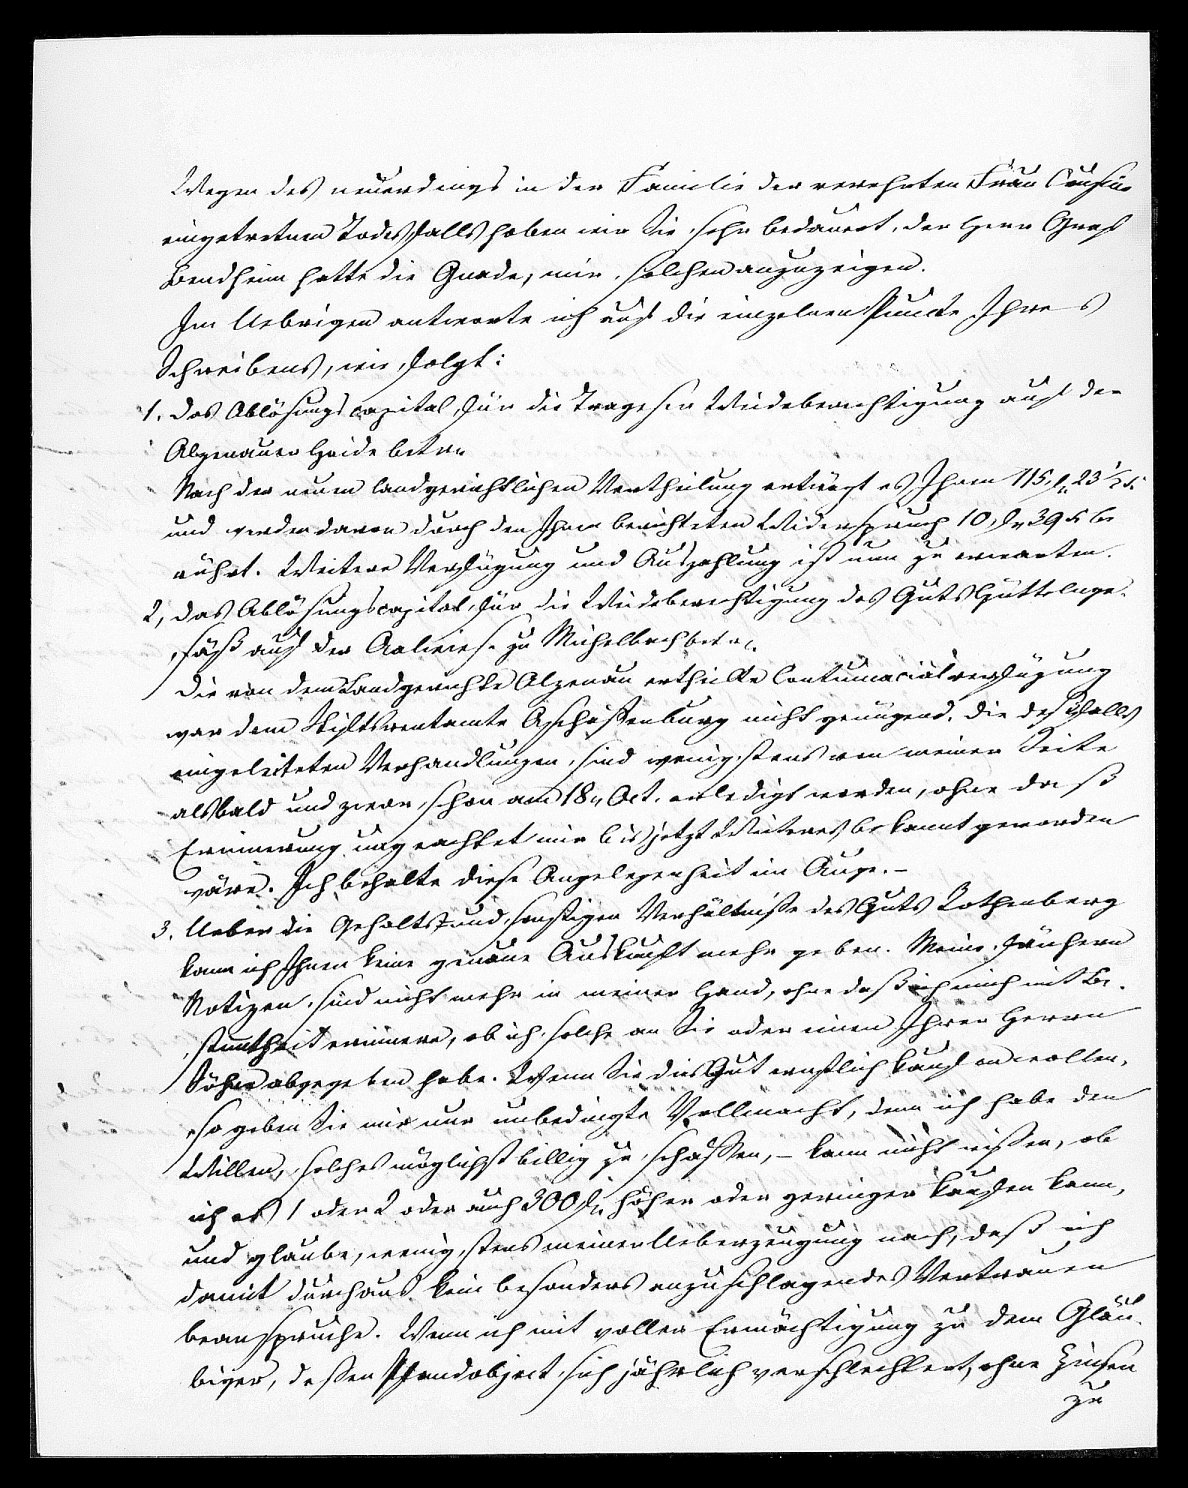 Wegen des neuerdings in der Familie der verehrten Frau Cousine
eingetretnen Todesfalls haben wir Sie sehr bedauert, der Herr Graf
Bendheim hatte die Gnade, mir solchen anzuzeigen.
Im Uebrigen antworte ich auf die einzelnen Puncte Ihres
Schreibens, wie folgt:
1. Das Ablösungscapital für die Trageser Weideberechtigung auf der
Alzenauer Haide betr.
Nach der neuen landgerichtlichen Vertheilung erträgt es Ihnen 115 fl 23 1/2 x.
und werden davon durch den Ihnen berichteten Widerspruch 10 fl 39 x be
rührt. Weitere Verfügung und Auszahlung ist nun zu erwarten.
2, das Ablösungscapital für die Weideberechtigung des Guts Hüttelnge-
säß auf der Aalwiese zu Michelbach betr.
Die von dem Landgerichte Alzenau ertheilte Contumacialverfügung
war dem Stiftsrentamte Aschaffenburg nicht genügend. Die desfalls
eingeleiteten Verhandlungen sind wenigstens von meiner Seite
alsbald und zwar schon am 18. Oct. erledigt worden, ohne daß
Erinnerung ungeachtet mir bis jetzt Weiteres bekannt geworden
wäre. Ich behalte diese Angelegenheit im Auge.-
3. Ueber die Gehalts- und sonstigen Verhältniße des Guts Rothenberg
kann ich Ihnen keine genaue Auskunft mehr geben. Meine frühern
Notizen sind nicht mehr in meiner Hand, ohne daß ich mich mit Be-
stimmtheit erinnere, ob ich solche an Sie oder einen Ihrer Herrn
Söhne abgegeben habe. Wenn Sie dies Gut ernstlich kaufen wollen,
so geben Sie mir nur unbedingte Vollmacht, denn ich habe den
Willen, solches möglichst billig zu schaffen, - kann nicht wißen, ob
ich es 1 oder 2 oder auch 300 fl. höher oder geringer kaufen kann,
und glaube, wenigstens meiner Ueberzeugung nach, daß ich
damit durchaus kein besonders anzuschlagendes Vertrauen
beanspruche. Wenn ich mit voller Ermächtigung zu dem Gläu-
biger, deßen Pfandobject sich jährlich verschlechtert, ohne Zinsen
zu